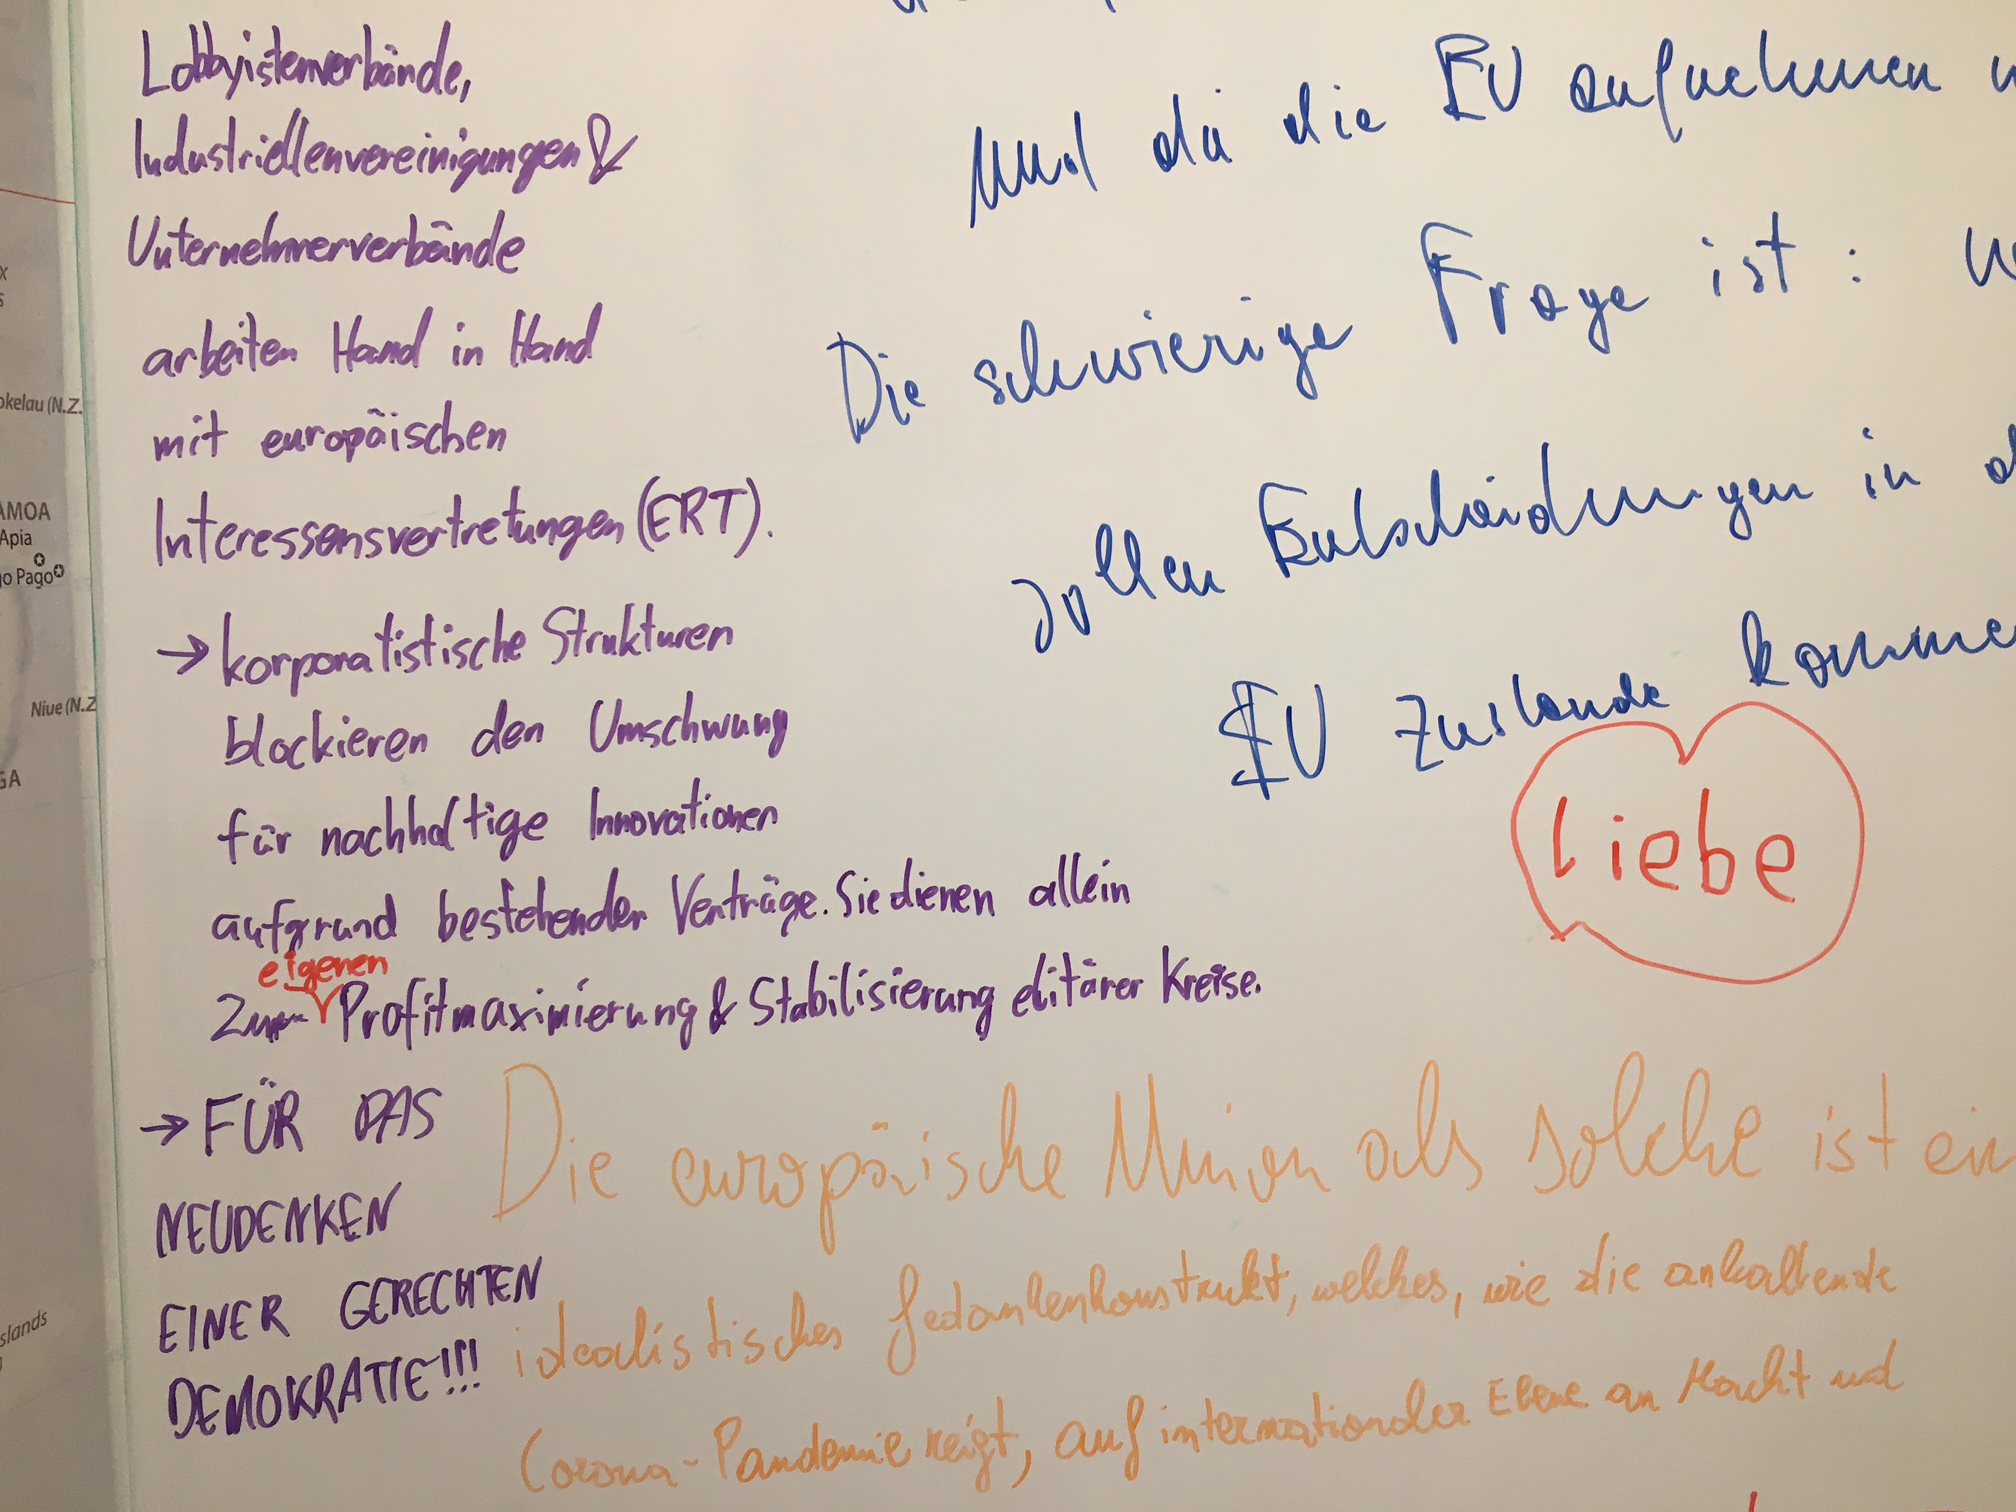 Lobbyistenverbände,
Industriellenvereinigungen &
Unternehmerverbände
arbeiten Hand in Hand
mit europäischen
Interessensvertretungen (ERT).
→ korporatistische Strukturen
blockieren den Umschwung
für nachhaltige Innovationen
aufgrund bestehender Verträge. Sie dienen allein
eigenen
Zur Profitmaximierung & Stabilisierung elitärer Kreise.
→ FÜR DAS
NEUDENKEN
EINER GERECHTEN
DEMOKRATIE!!!
und die EU aufnehmen
Die schwierige Frage ist:
sollen Entscheidungen in
EU Zustande komme
liebe
Die europäische Union als solche ist ein
idealistisches Gedankenkonstrukt, welches, wie die anhaltende
Corona-Pandemie zeigt, auf internationaler Ebene an Macht und
okelau (N.Z.
AMOA
Apia
o Pago
Niue (N.Z
GA
slands